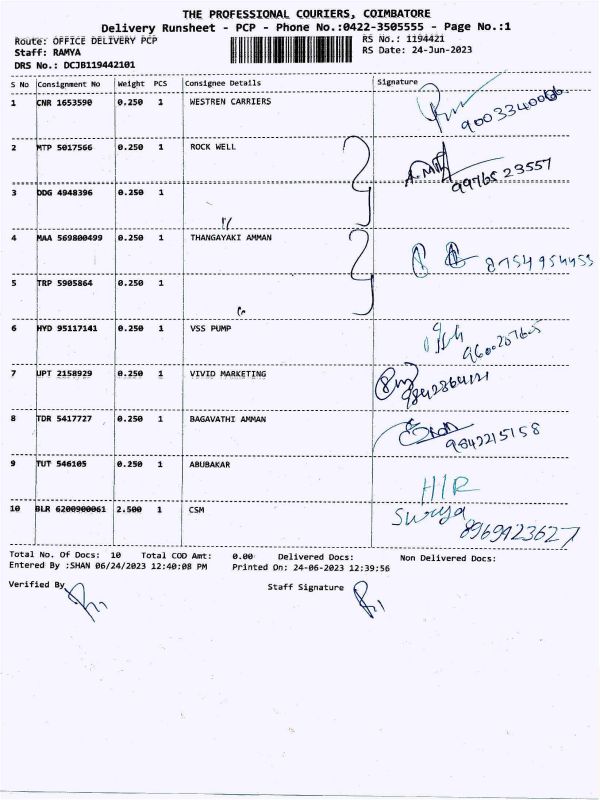 THE PROFESSIONAL COURIERS, COIMBATORE
Delivery Runsheet - PCP - Phone No.:0422-3505555 - Page No.:1
Route: OFFICE DELIVERY PCP
RS No.: 1194421
Staff: RAMYA
RS Date: 24-Jun-2023
DRS No.: DCJB119442101
S No Consignment No Weight PCS Consignee Details Signature
1 CNR 1653590 0.250 1 WESTREN CARRIERS
9003340066
2 MTP 5017566 0.250 1 ROCK WELL
9976523557
3 DDG 4948396 0.250 1
4 MAA 569800499 0.250 1 THANGAYAKI AMMAN
8754954453
5 TRP 5905864 0.250 1
6 HYD 95117141 0.250 1 VSS PUMP
7 UPT 2158929 0.250 1 VIVID MARKETING
8 TDR 5417727 0.250 1 BAGAVATHI AMMAN
9842215158
9 TUT 546105 0.250 1 ABUBAKAR
H/R
10 BLR 6200900061 2.500 1 CSM
Surya
8969923627
Total No. Of Docs: 10 Total COD Amt: 0.00 Delivered Docs: Non Delivered Docs:
Entered By :SHAN 06/24/2023 12:40:08 PM Printed On: 24-06-2023 12:39:56
Verified By Staff Signature